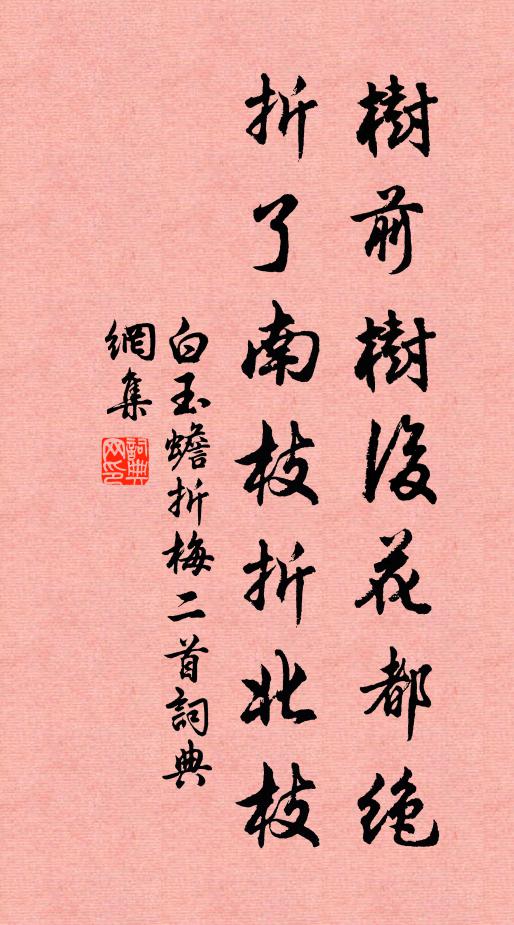 樹前樹後花都絶
折了南枝折北枝
白玉蟾折梅二首詞典
網集
詞典
网印